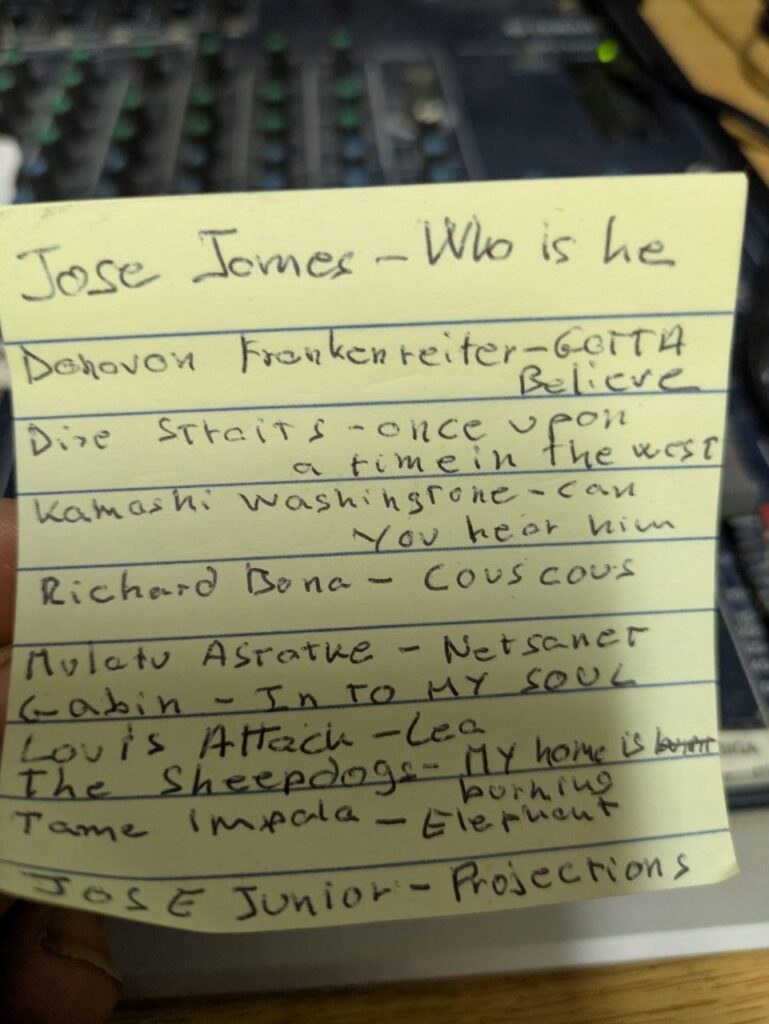 Jose Jomes - Who is he
Donovon Frankenreiter - GOTTA
Believe
Dire Straits - once upon
a time in the west
Kamashi Washingtone - can
You hear him
Richard Bona - Couscous
Mulatu Astatke - Netsanet
Gabin - In TO MY SOUL
Louis Attack - Lea
The Sheepdogs - MY home is
burning
Tame impala - Elephant
JOSE JUNIOR - Projections